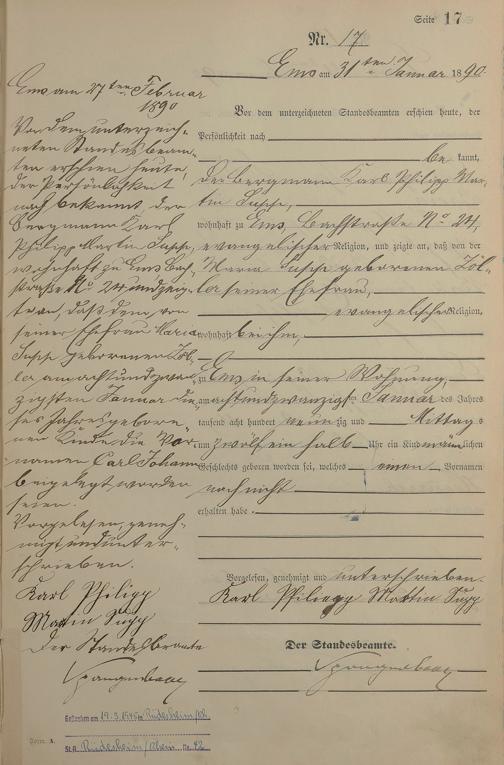 Seite 17
Nr. 17
Ems am 31ten Januar 1890
Vor dem unterzeichneten Standesbeamten erschien heute, der
Persönlichkeit nach
be kannt,
der Bergmann Karl Philipp Mar-
tin
wohnhaft zu Ems, Bachstraße No 24,
evangelischer Religion, und zeigte an, daß von der
Maria geborenen Zöl-
ler seiner Ehefrau,
evangelischer Religion,
wohnhaft bei ihm,
zu Ems in seiner Wohnung,
am achtundzwanzigsten Januar des Jahres
tausend acht hundert neunzig und Mittags
um zwölf ein halb Uhr ein Kind männlichen
Geschlechts geboren worden sei, welches einen Vornamen
noch nicht
erhalten habe.
Vorgelesen, genehmigt und unterschrieben.
Karl Philipp Martin
Der Standesbeamte.
Ems am 27ten Februar
1890
Vor dem unterzeich-
neten Standesbeam-
ten erschien heute,
der Persönlichkeit
nach bekannt, der
Bergmann Karl
Philipp Martin
wohnhaft zu Ems Bach-
straße No 24 und zeig-
te an, daß dem, von
seiner Ehefrau Maria
geborenen Zöl-
ler am achtundzwan-
zigsten Januar die-
ses Jahres gebore-
nen Kinde, die Vor-
namen Carl Johann
beigelegt worden
seien.
Vorgelesen, geneh-
migt und unter-
schrieben.
Karl Philipp
Martin
Der Standesbeamte
Gestorben am 19.3.1945 in Rüdesheim/Rh.
St.A. Rüdesheim/Rhein Nr. 22
Form. A.